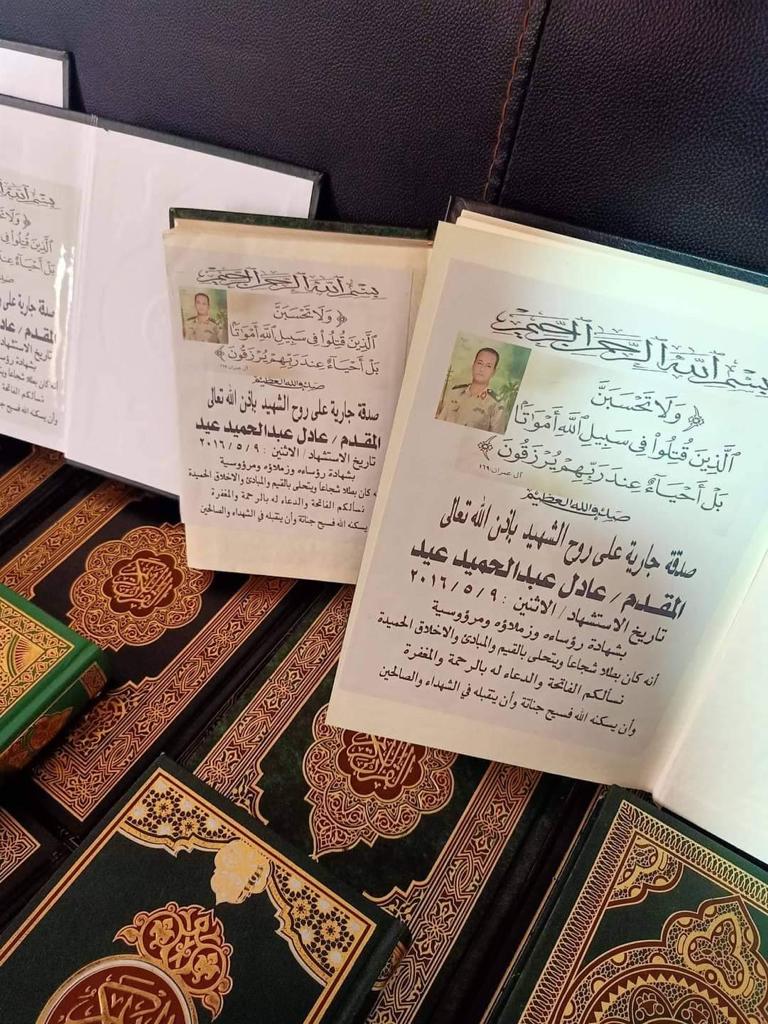 بسم الله الرحمن الرحيم
﴿ وَلَا تَحْسَبَنَّ
ٱلَّذِينَ قُتِلُوا۟ فِى سَبِيلِ ٱللَّهِ أَمْوَٰتًۢا
بَلْ أَحْيَآءٌ عِندَ رَبِّهِمْ يُرْزَقُونَ ﴾
آل عمران ١٦٩
صدق الله العظيم
صدقة جارية على روح الشهيد بإذن الله تعالى
المقدم / عادل عبدالحميد عيد
تاريخ الاستشهاد / الاثنين : ٢٠١٦/٥/٩
بشهادة رؤساءه وزملاؤه ومرؤوسية
أنه كان بطلا شجاعا ويتحلى بالقيم والمبادئ والاخلاق الحميدة
نسألكم الفاتحة والدعاء له بالرحمة والمغفرة
وأن يسكنه الله فسيح جناتة وأن يتقبله في الشهداء والصالحين
بسم الله الرحمن الرحيم
﴿ وَلَا تَحْسَبَنَّ
ٱلَّذِينَ قُتِلُوا۟ فِى سَبِيلِ ٱللَّهِ أَمْوَٰتًۢا
بَلْ أَحْيَآءٌ عِندَ رَبِّهِمْ يُرْزَقُونَ ﴾
آل عمران ١٦٩
صدق الله العظيم
صدقة جارية على روح الشهيد بإذن الله تعالى
المقدم / عادل عبدالحميد عيد
تاريخ الاستشهاد / الاثنين : ٢٠١٦/٥/٩
بشهادة رؤساءه وزملاؤه ومرؤوسية
كان بطلا شجاعا ويتحلى بالقيم والمبادئ والاخلاق الحميدة
نسألكم الفاتحة والدعاء له بالرحمة والمغفرة
يسكنه الله فسيح جناتة وأن يتقبله في الشهداء والصالحين
بسم الله
﴿ وَلَا
ٱلَّذِينَ قُتِلُوا۟ فِى
بَلْ أَحْيَآءٌ عِندَ
صدقة جارية على
المقدم / عاد
تاريخ الاستشهاد
بشهادة رؤس
أنه كان بطلا شجاعا و
نسألكم الفاتحة
وأن يسكنه الله فس